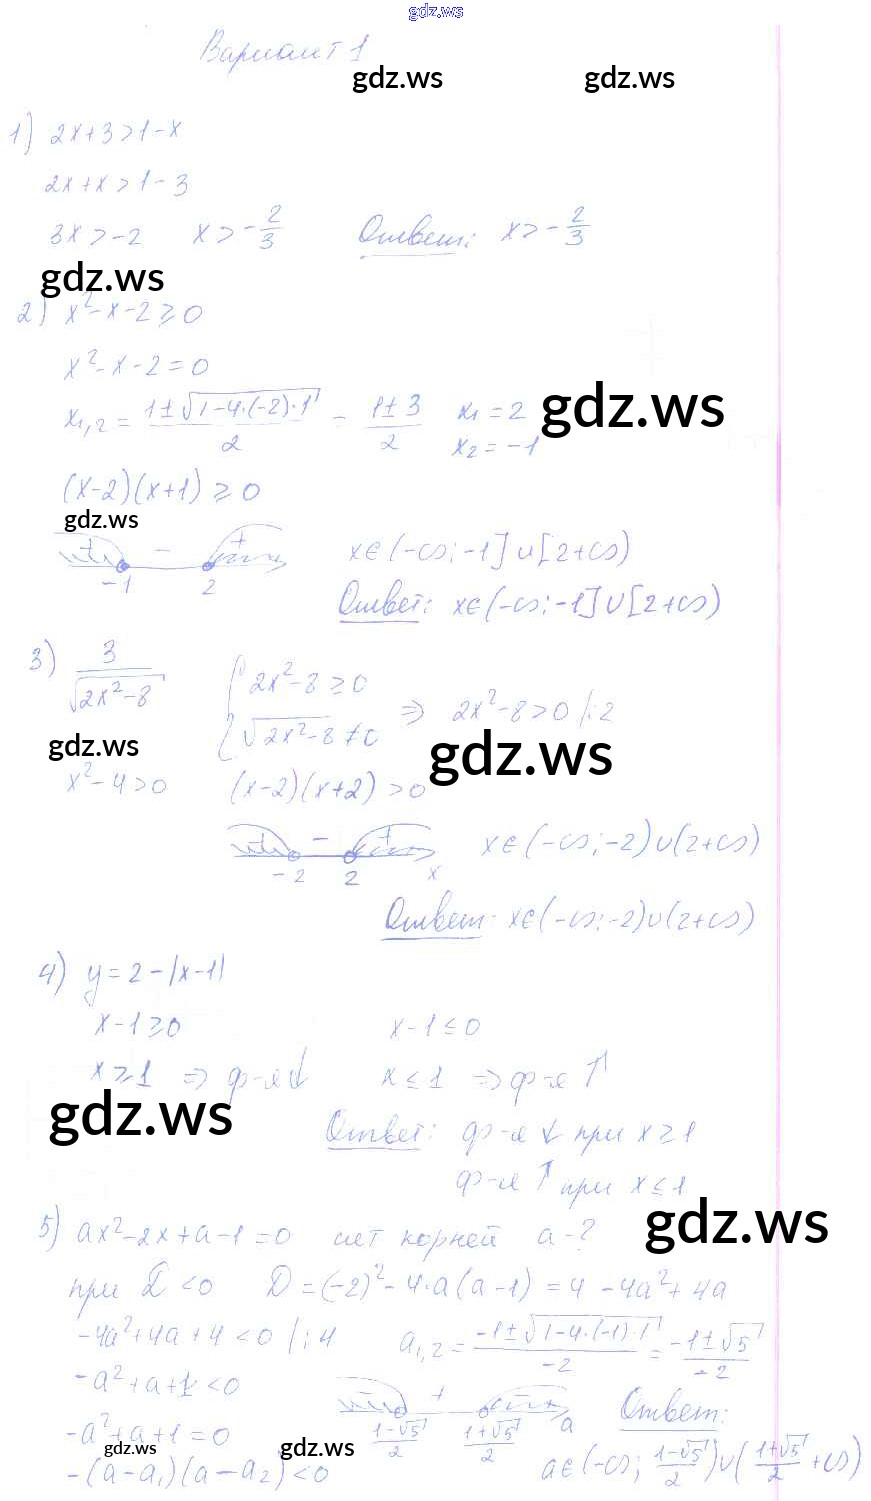 gdz.ws
Вариант 1
gdz.ws gdz.ws
1) 2x+3>1-x
2x+x>1-3
3x>-2 x>-2/3 Ответ: x>-2/3
gdz.ws
2) x²-x-2≥0
x²-x-2=0
x₁,₂ = (1±√(1-4·(-2)·1))/2 = (1±3)/2 x₁=2
x₂=-1
gdz.ws
(x-2)(x+1)≥0
gdz.ws
+ - +
-1 2
x∈(-∞;-1]∪[2+∞)
Ответ: x∈(-∞;-1]∪[2+∞)
3) 3/√(2x²-8) { 2x²-8≥0
√(2x²-8)≠0 ⇒ 2x²-8>0 /:2
gdz.ws gdz.ws
x²-4>0 (x-2)(x+2)>0
+ - +
-2 2 x
x∈(-∞;-2)∪(2+∞)
Ответ: x∈(-∞;-2)∪(2+∞)
4) y=2-|x-1|
x-1≥0 x-1≤0
x≥1 ⇒ ф-я↓ x≤1 ⇒ ф-я↑
gdz.ws
Ответ: ф-я ↓ при x≥1
ф-я ↑ при x≤1
gdz.ws
5) ax²-2x+a-1=0 нет корней a-?
при D<0 D=(-2)²-4·a(a-1)=4-4a²+4a
-4a²+4a+4<0 /:4 a₁,₂ = (-1±√(1-4·(-1)·1))/-2 = (-1±√5)/-2
-a²+a+1<0
- + -
(1-√5)/2 (1+√5)/2 a
Ответ:
-a²+a+1=0
gdz.ws gdz.ws
-(a-a₁)(a-a₂)<0
a∈(-∞; (1-√5)/2)∪((1+√5)/2+∞)